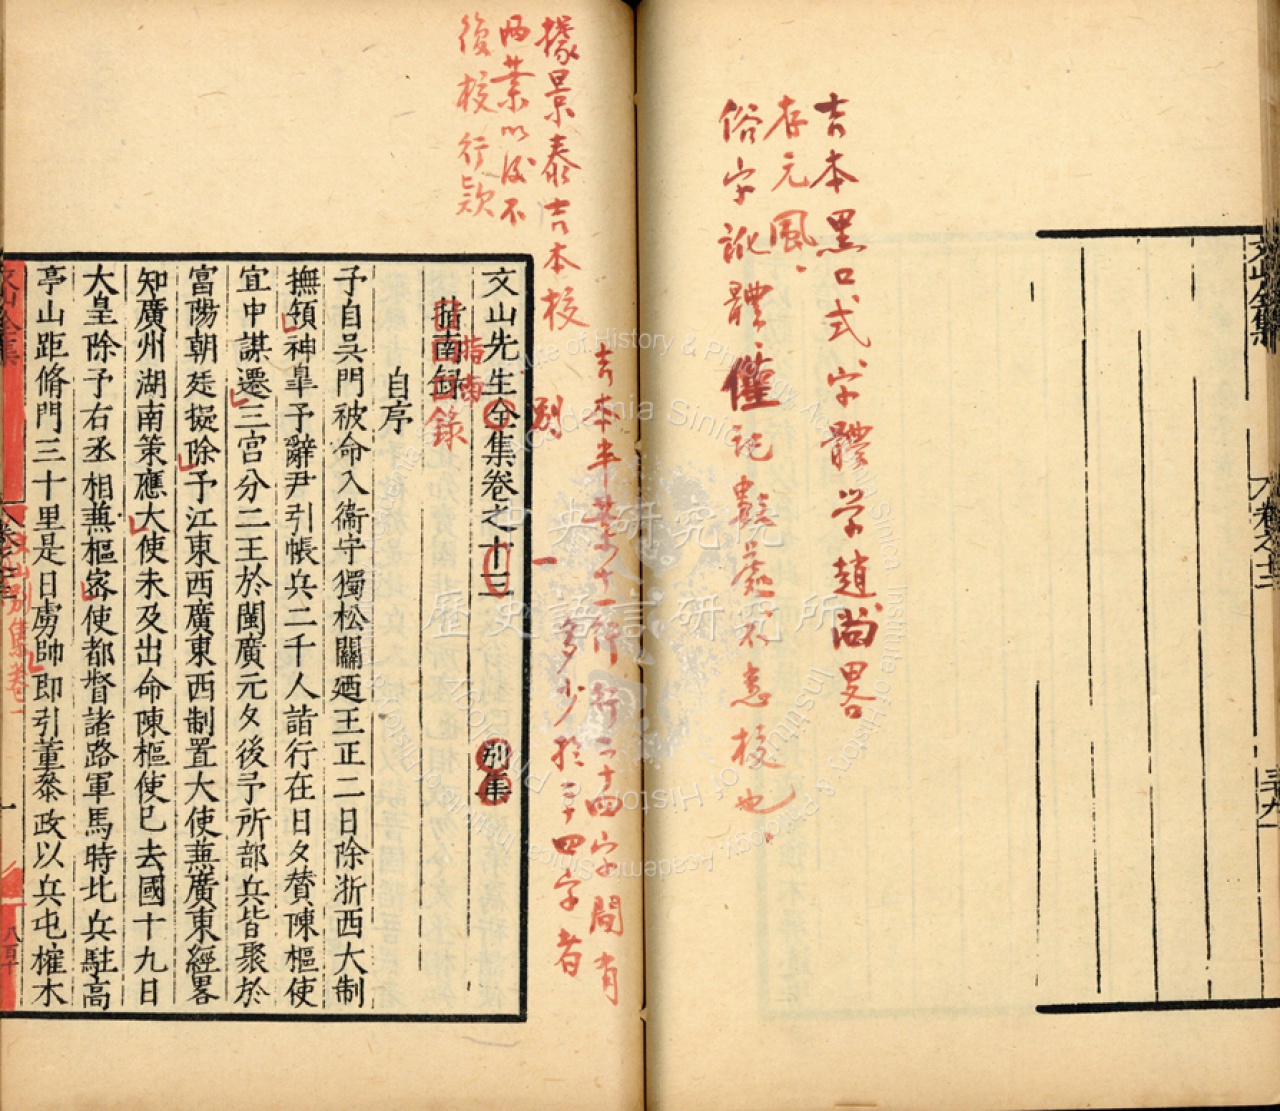 吉本黑口式字體学趙尚畧
存元風
俗字訛體僅記數處不悉校也
據景泰吉本校
兩葉以後不
後校行款
吉本半葉十一行行二十四字間有
多少於二十四字者
別
一
文山先生全集卷之十三
別集
指南録
指南
自序
予自吳門被命入衞守獨松關廼王正二日除浙西大制
撫領神臯予辭尹引帳兵二千人詣行在日夕賛陳樞使
宜中謀遷三宮分二王於閩廣元夕後予所部兵皆聚於
富陽朝廷擬除予江東西廣東西制置大使蕪廣東經畧
知廣州湖南策應大使未及出命陳樞使已去國十九日
大皇除予右丞相蕪樞宻使都督諸路軍馬時北兵駐高
亭山距脩門三十里是日虜帥即引董叅政以兵屯榷木
文山全集
文山別集卷一
一
八百十
文山全集
卷之十二